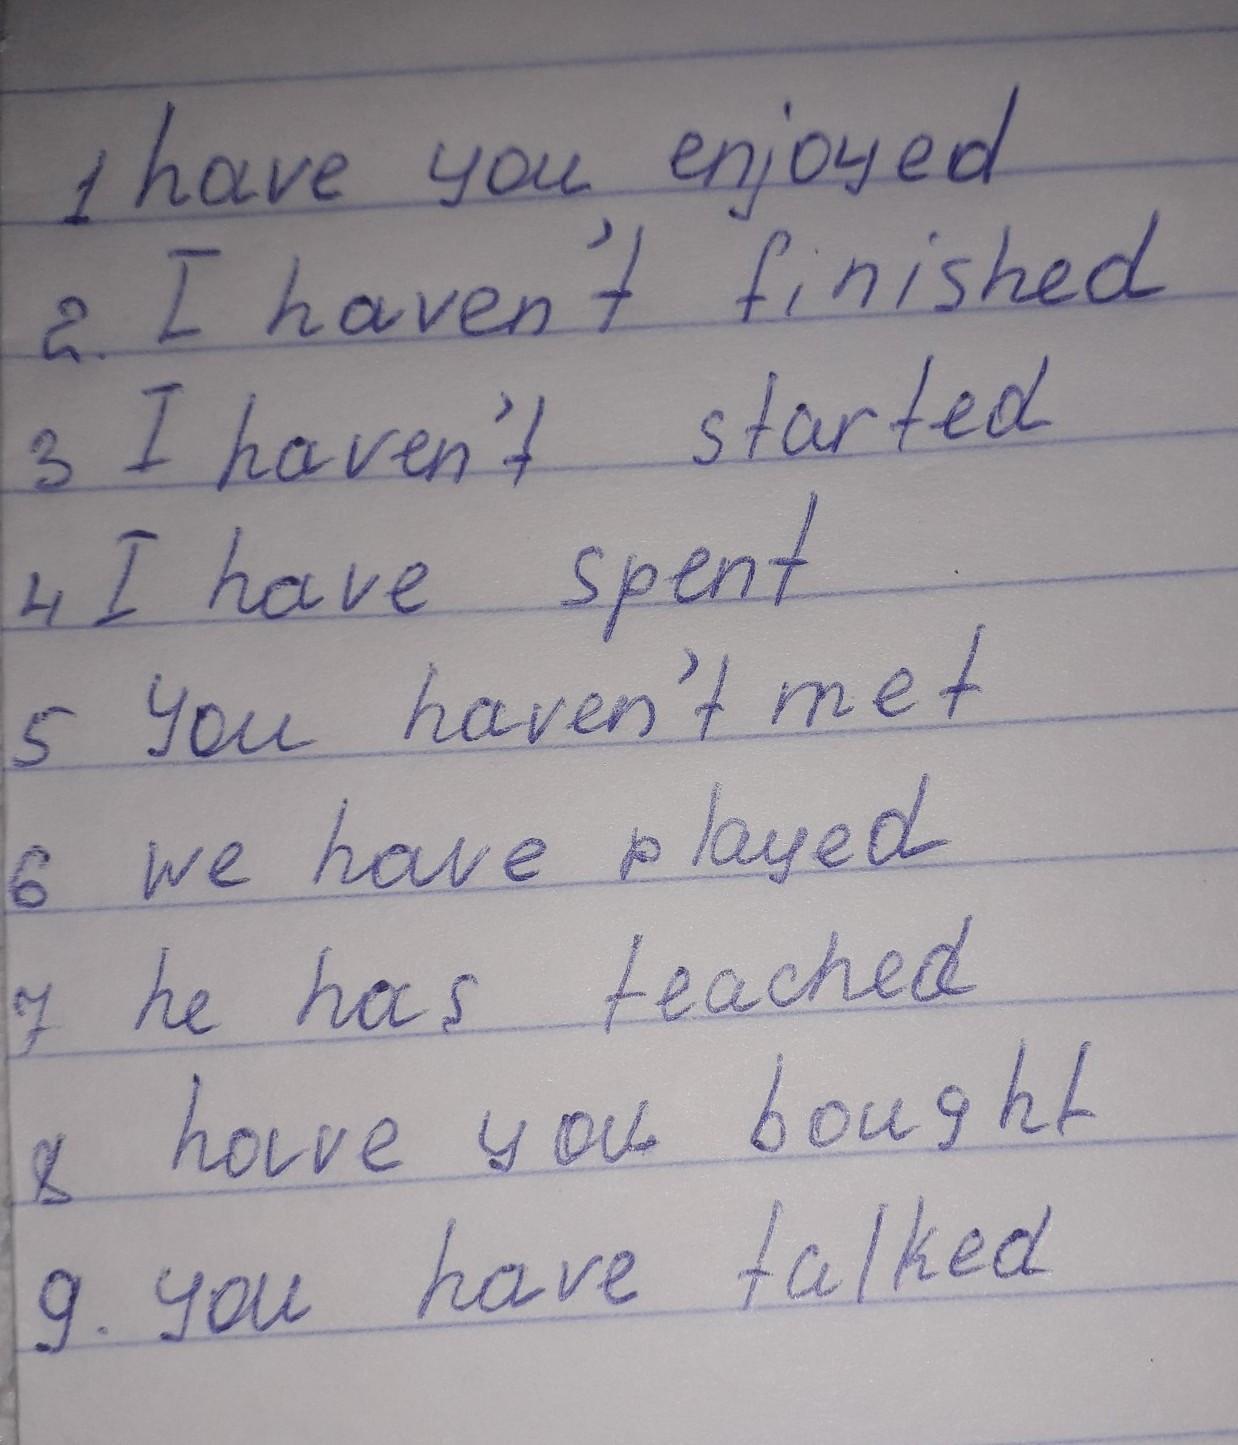 1 have you enjoyed
2. I haven't finished
3 I haven't started
4 I have spent
5 you haven't met
6 we have played
7 he has teached
8 have you bought
9. you have talked